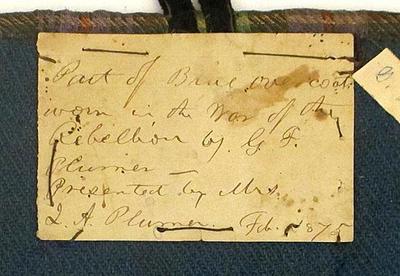 Part of Blue overcoat
worn in the War of the
Rebellion by G. F.
Plumer —
Presented by Mrs.
L. A. Plumer. Feb. 1875